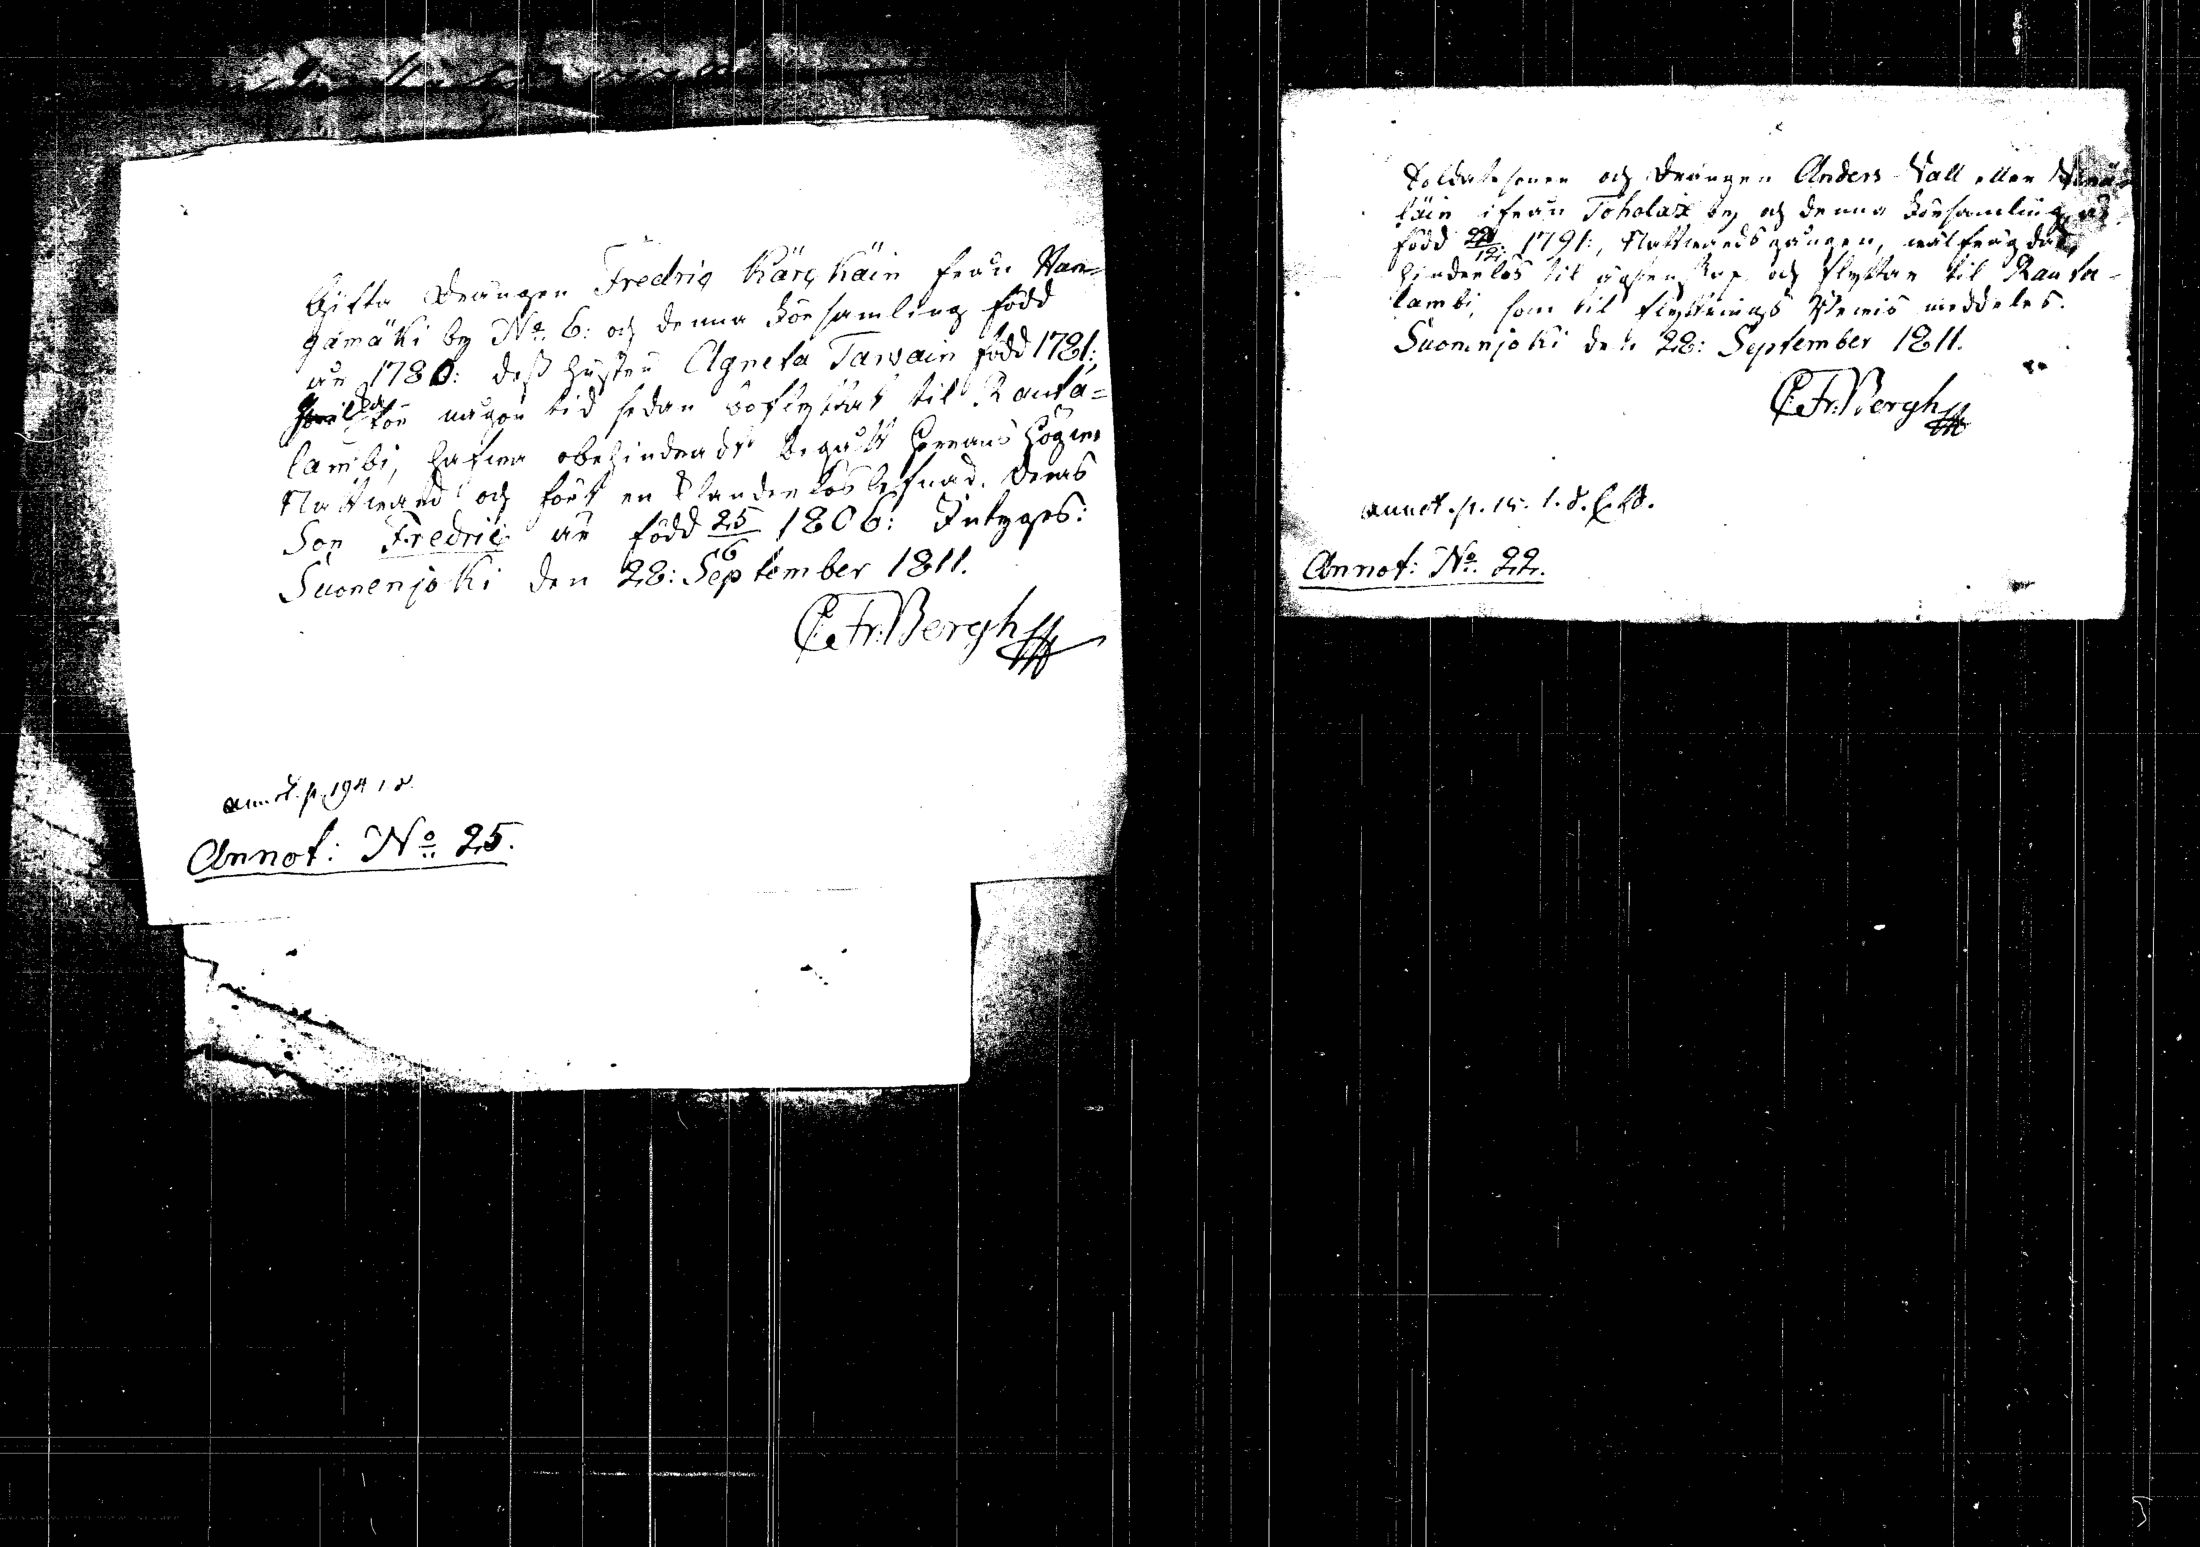 Gifta Drängen Fredric Kärckäin från Van=
gamäki by No 6: och denna Församling född
år 1780: dess hustru Agneta Tarvain född 1781:,
som för någon tid sedan bortflyttat til Rauta=
lambi, hafwa obehindradt begått Herrans Högw:
Nattward och fört en klanderlös lefnad. Deras
Son Fredric är född 25/6 1806: Intygas:
Suonenjoki den 28: September 1811.
C. Fr: Bergh
annot. p. 194
Annot: No 25.
Soldatssonen och Drängen Anders Vall eller
läin ifrån Toholax by och denna Församling, är
född 1791:, Nattwardsgången, wälfrägdad,
hinderlös til ägtenskap och flyttar til Rauta-
lambi, som til flyttnings Bewis meddeles.
Suonenjoki den 28: September 1811.
C. Fr: Bergh
annot. p. 15.
Annot: No 22.